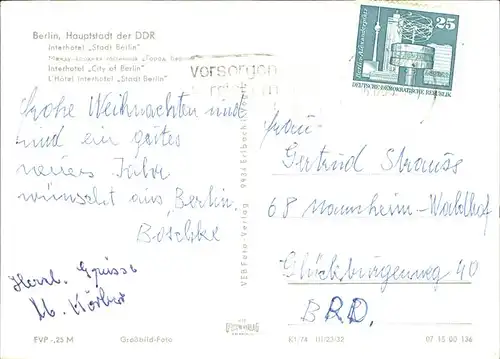 Berlin, Hauptstadt der DDR
Interhotel „Stadt Berlin"
Interhotel „City of Berlin"
L'Hôtel Interhotel „Stadt Berlin"
vorsorgen
25
DEUTSCHE DEMOKRATISCHE REPUBLIK
frohe Weihnachten und
und ein gutes
neues Jahr
wünscht aus Berlin
Böschke
Herzl. Grüsse
Körber
VEB Foto-Verlag 9934 Erlbach
Frau
Gertrud Strauss
68 Mannheim-Waldhof
Glücksburgerweg 40
BRD.
EVP -,25 M
Großbild-Foto
K1/74 III/23-32
07 15 00 136